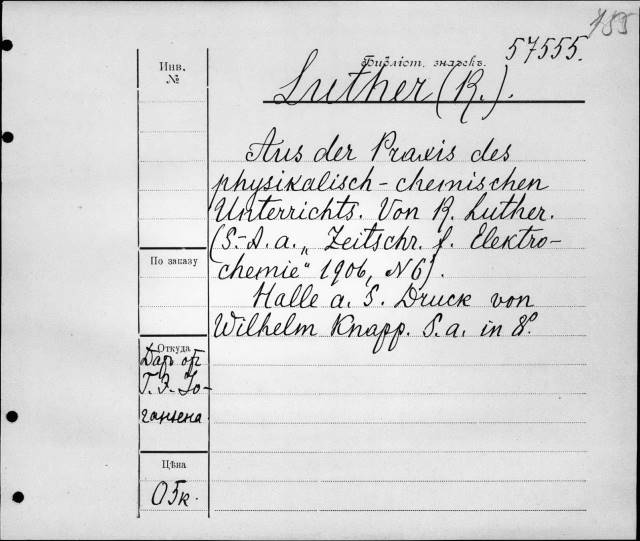 155
57555.
Инв. №
Библіот. значекъ.
Luther (R.).
Aus der Praxis des
physikalisch-chemischen
Unterrichts. Von R. Luther.
(S.-A. a. „Zeitschr. f. Elektro-
chemie" 1906, N6).
Halle a. S. Druck von
Wilhelm Knapp. S. a. in 8º.
По заказу
Откуда
Даръ отъ
Г. Э. Іо-
гансена
Цѣна
05к.